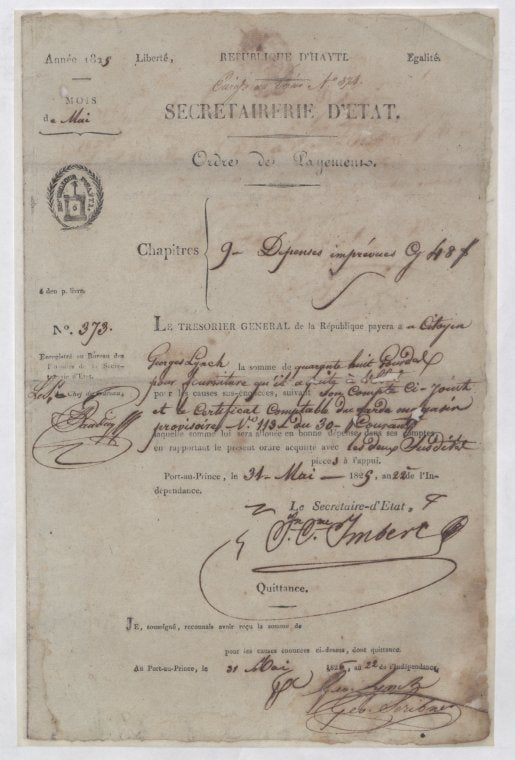 Année 1825 Liberté, REPUBLIQUE D'HAYTI. Egalité.
MOIS
de Mai
SECRETAIRERIE D'ETAT.
Ordres des Payemens.
REPUBLIQUE D'HAYTI.
Chapitres 9 — Dépenses imprévues G 48 f
N°. 373.
LE TRESORIER GENERAL de la République payera au Citoyen
Enregistré au Bureau des
de la Secré-
tairie d'Etat.
Georges Lynch la somme de quarante huit Gourdes
pour fourniture qu'il a faite à l'Etat
pour les causes sus-énoncées, suivant son Compte Ci-joint
et le Certificat Comptable du Garde magasin
provisoire N° 1132 du 30 Courant
laquelle somme lui sera allouée en bonne dépense dans ses comptes,
en rapportant le présent ordre acquitté avec les deux Susdites
pièces à l'appui.
Port-au-Prince, le 31 Mai 1825, an 22e de l'In-
dépendance.
Le Secrétaire-d'Etat,
Jh. Cme. Imbert
Quittance.
JE, soussigné, reconnais avoir reçu la somme de
pour les causes énoncées ci-dessus, dont quittance.
Au Port-au-Prince, le 31 Mai 1825, an 22 de l'Indépendance.
Geo. Lynch
Geo. Scribner